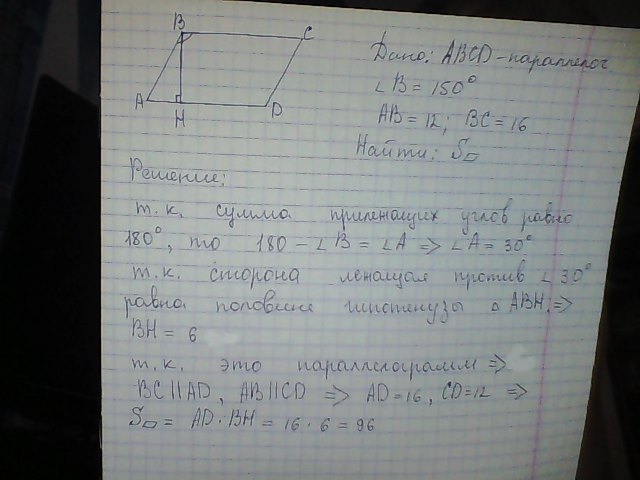 B
C
A
H
D
Дано: ABCD – параллелог
∠B = 150°
AB = 12; BC = 16
Найти: S▱
Решение:
т.к. сумма прилежащих углов равна
180°, то 180 – ∠B = ∠A ⇒ ∠A = 30°
т.к. сторона лежащая против ∠30°
равна половине гипотенузы △ABH ⇒
BH = 6
т.к. это параллелограмм ⇒
BC || AD, AB || CD ⇒ AD = 16, CD = 12 ⇒
S▱ = AD · BH = 16 · 6 = 96